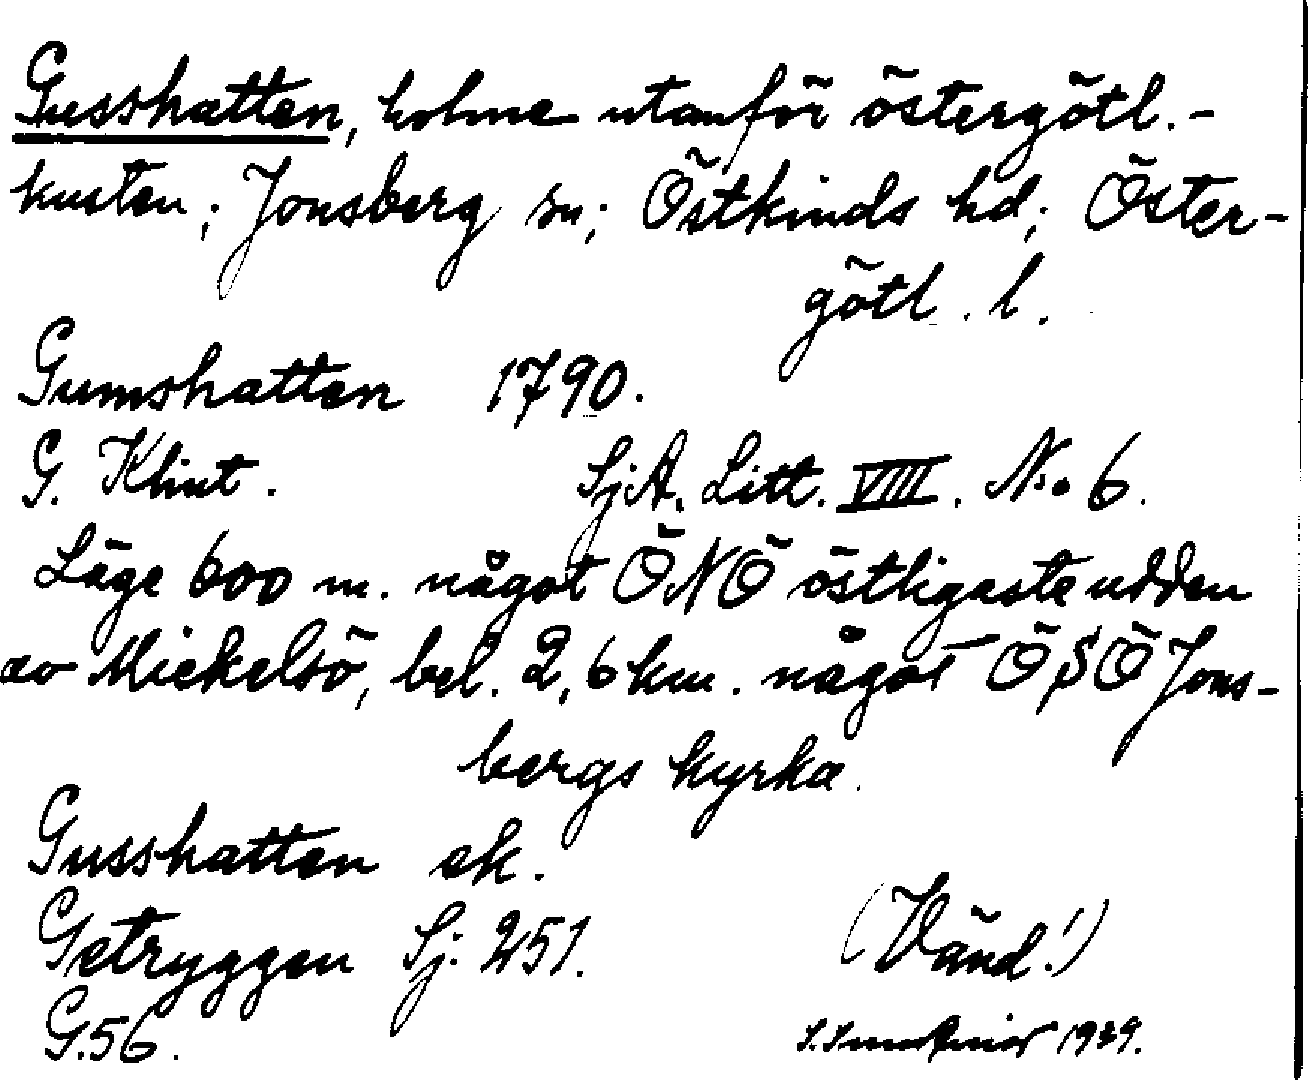 Gusshatten, holme utanför östergötl.-
kusten; Jonsberg sn; Östkinds hd; Öster-
götl. l.
Gumshatten 1790.
G. Klint. SjA. Litt. VIII. No 6.
Läge 600 m. något ÖNÖ östligaste udden
av Mickelsö, bel. 2,6 km. något ÖSÖ Jons-
bergs kyrka.
Gusshatten ek.
Getryggen Sj. 251. (Vänd!)
G.56. 1939.